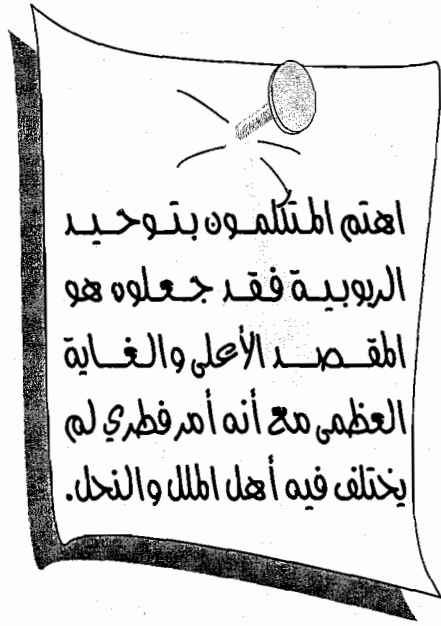 اهتم المتكلمون بتوحيد
الربوبية فقد جعلوه هو
المقصد الأعلى والغاية
العظمى مع أنه أمر فطري لم
يختلف فيه أهل الملل والنحل.